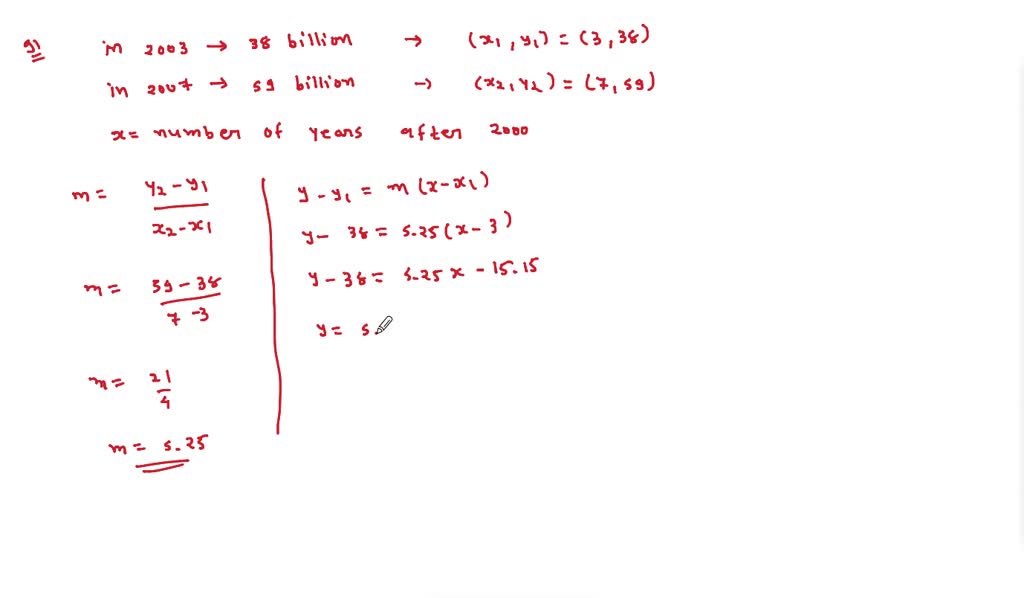 91
in 2003 → 38 billion → (x1, y1) = (3, 38)
in 2007 → 59 billion → (x2, y2) = (7, 59)
x = number of years after 2000
m = y2 - y1 / x2 - x1
m = 59 - 38 / 7 - 3
m = 21 / 4
m = 5.25
y - y1 = m (x - x1)
y - 38 = 5.25 (x - 3)
y - 38 = 5.25 x - 15.15
y = 5